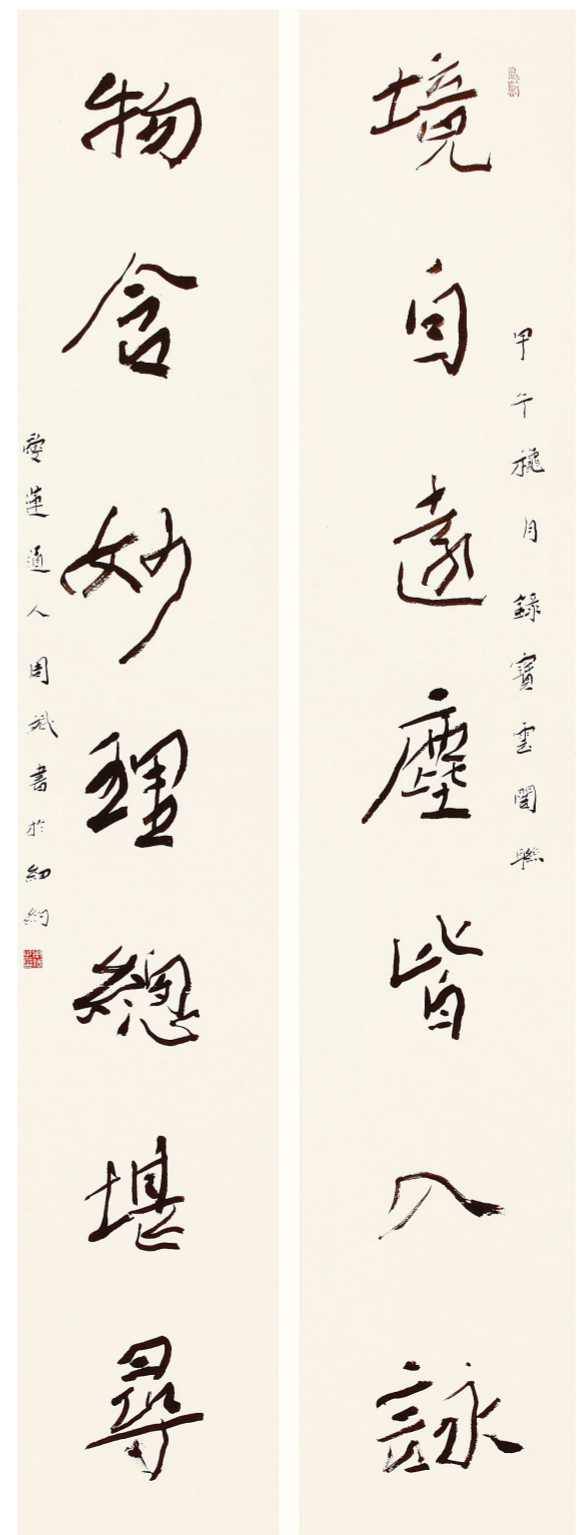 境自遠塵皆入詠
甲午穐月錄寶雲閣聯
物含妙理總堪尋
愛蓮道人周斌書於紐約